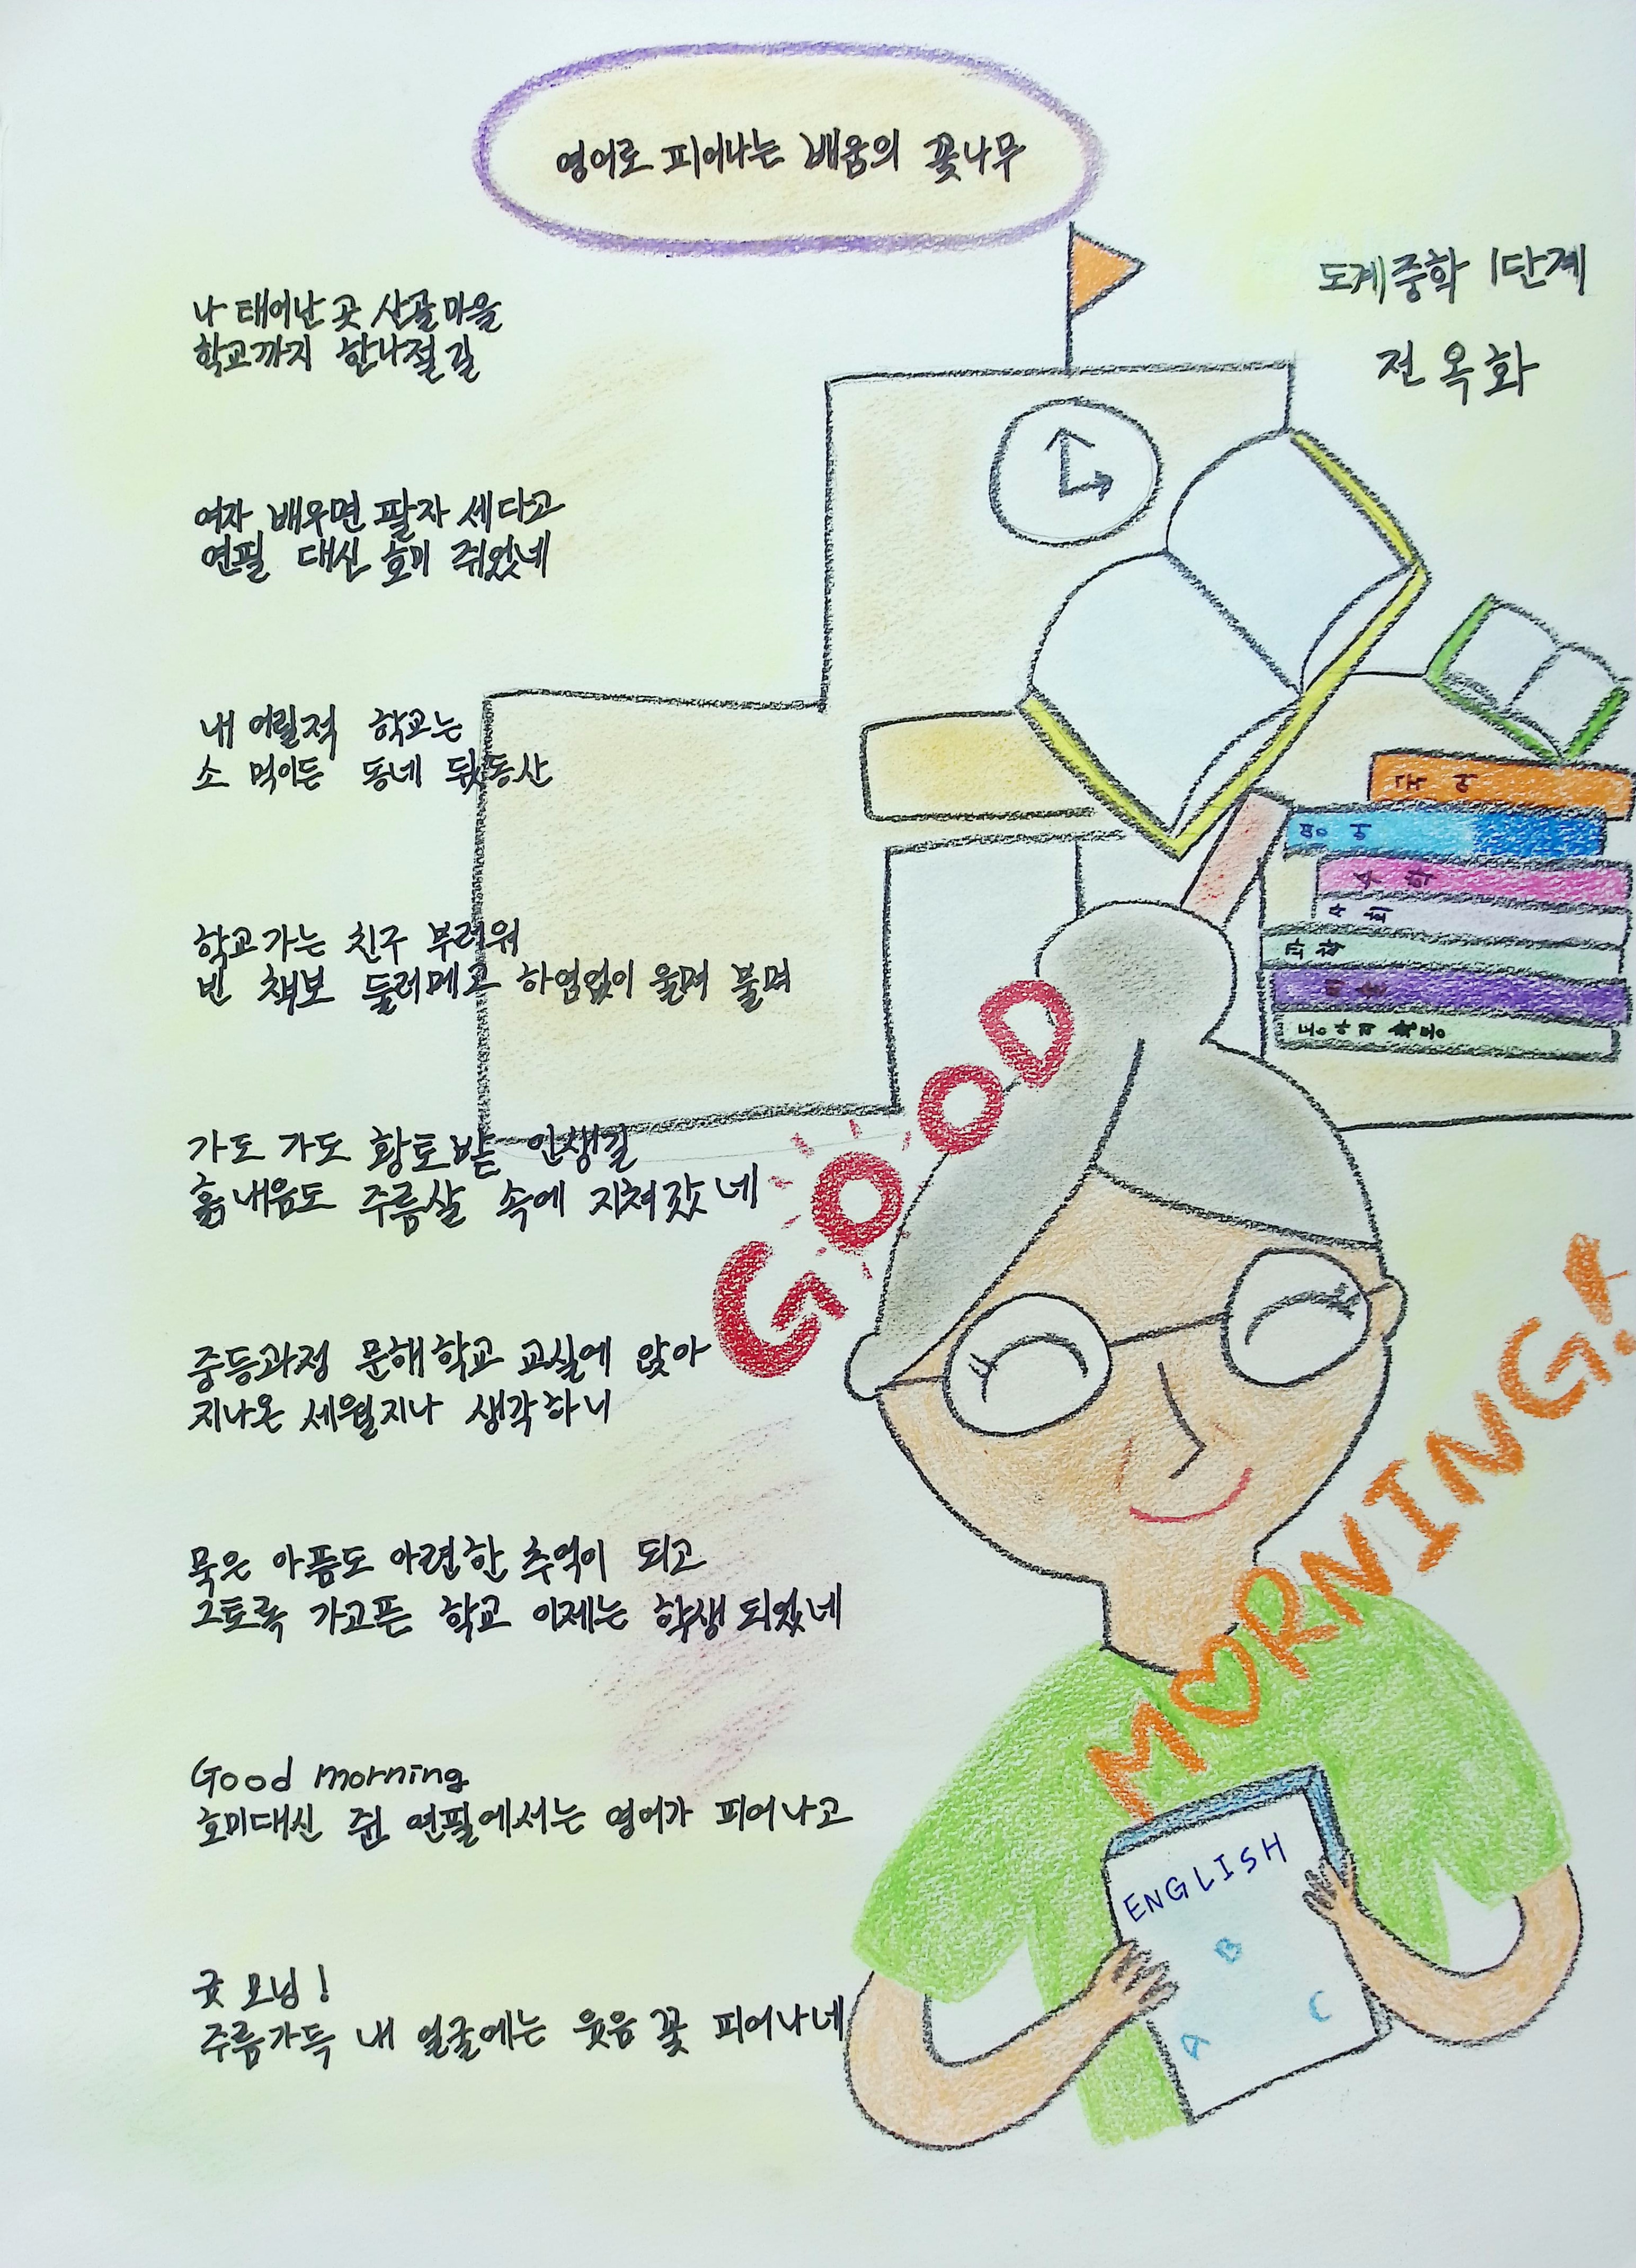 영어로 피어나는 배움의 꽃나무
도계중학 1단계
전옥화
나 태어난 곳 산골마을
학교까지 한나절길
여자 배우면 팔자 세다고
연필 대신 호미 쥐었네
내 어릴적 학교는
소 먹이든 동네 뒷동산
학교가는 친구 부러워
빈 책보 둘러메고 하염없이 울며 불며
가도 가도 황토밭 인생길
흙내음도 주름살 속에 지쳐갔네
중등과정 문해학교 교실에 앉아
지나온 세월지나 생각하니
묵은 아픔도 아련한 추억이 되고
그토록 가고픈 학교 이제는 학생 되었네
Good morning
호미대신 쥔 연필에서는 영어가 피어나고
굿 모닝!
주름가득 내 얼굴에는 웃음 꽃 피어나네
국어
영어
수학
사회
과학
GOOD
MORNING!
ENGLISH
A B C